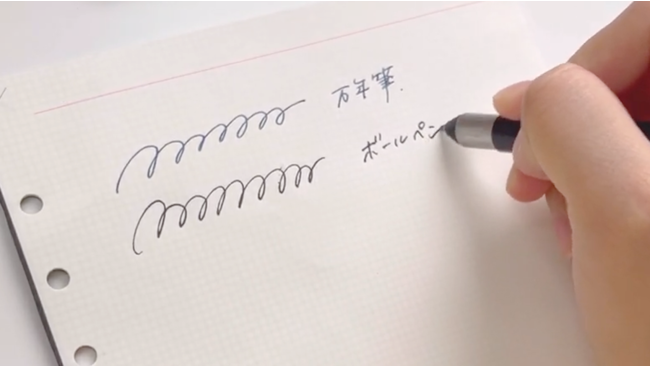 万年筆.
ボールペン